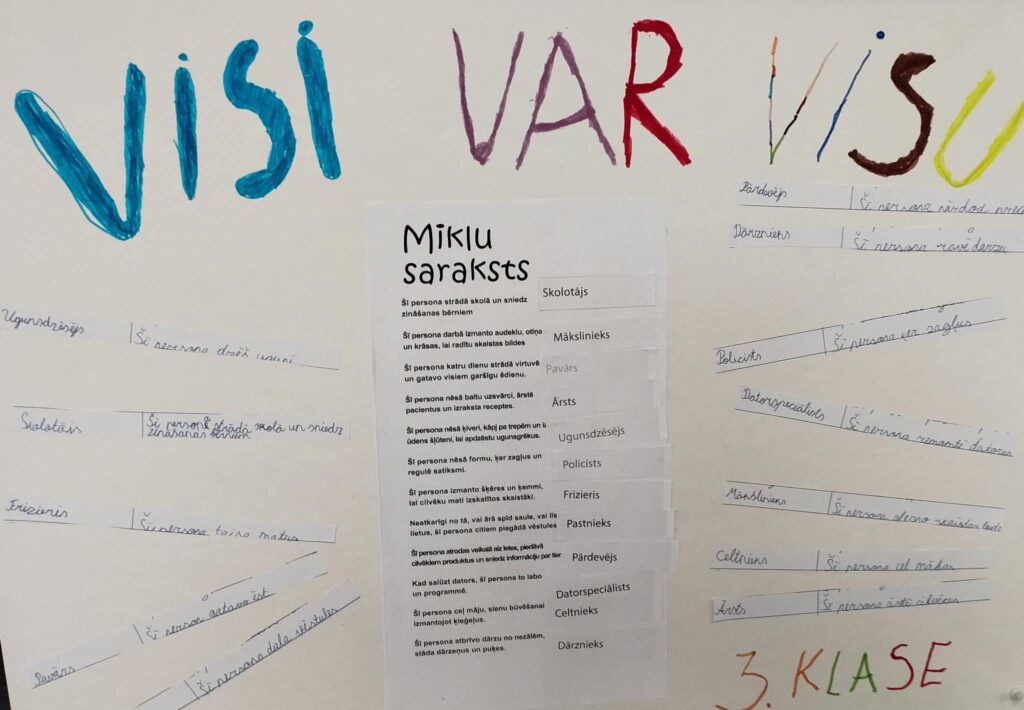 VISI VAR VISU
Miklu
saraksts
Šī persona strādā skolā un sniedz
zināšanas bērniem
Skolotājs
Šī persona darbā izmanto audeklu, otiņa
un krāsas, lai radītu skaistas bildes
Mākslinieks
Šī persona katru dienu strādā virtuvē
un gatavo visiem garšīgu ēdienu.
Pavārs
Šī persona nēsā baltu uzsvārci, ārstē
pacientus un izraksta receptes.
Ārsts
Šī persona nēsā ķiveri, kāpj pa trepēm un
ūdens šļūteni, lai apdzēstu ugunsgrēkus.
Ugunsdzēsējs
Šī persona nēsā formu, ķer zagļus un
regulē satiksmi.
Policists
Šī persona izmanto šķēres un ķemmi,
lai cilvēku mati izskatītos skaistāki.
Frizieris
Neatkarīgi no tā, vai ārā spīd saule, vai līs
lietus, šī persona citiem piegādā vēstules
Pastnieks
Šī persona atrodas veikalā aiz letes, piedāvā
cilvēkiem produktus un sniedz informāciju par tiem
Pārdevējs
Kad salūzt dators, šī persona to labo
un programmē.
Datorspeciālists
Šī persona ceļ māju, sienu būvēšanai
izmantojot ķieģeļus.
Celtnieks
Šī persona atbrīvo dārzu no nezālēm,
stāda dārzeņus un puķes.
Dārznieks
Ugunsdzēsējs
Šī persona dzēš uguni
Skolotājs
Šī persona strādā skolā un sniedz
zināšanas bērniem.
Frizieris
Šī persona taisa matus
Pavārs
Šī person gatavo ēst
Šī persona dala vēstules
Pārdevējs
Šī persona pārdod
Dārznieks
Šī persona ravē dārzu
Policists
Šī persona ķer zagļus
Datorspeciālists
Šī persona remontē datorus
Mākslinieks
Šī persona skaistas
Celtnieks
Šī persona ceļ mājas
Ārsts
Šī persona ārstē cilvēkus
3. KLASE